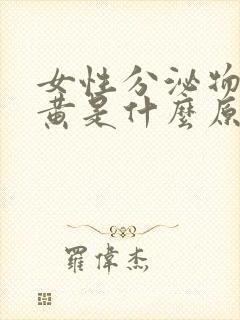 女性分泌物
黃是什麼原
羅偉杰